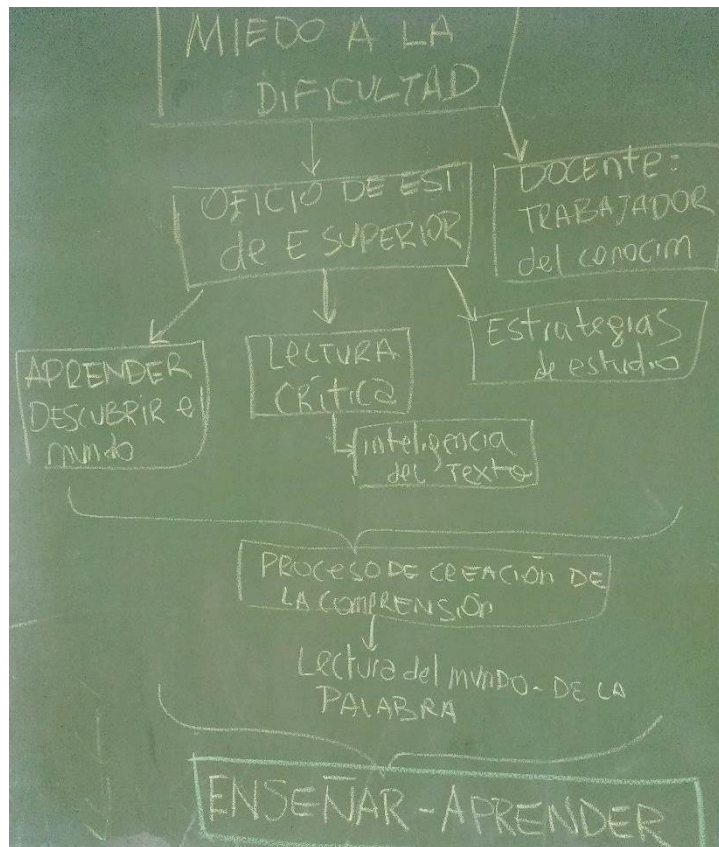 MIEDO A LA
DIFICULTAD
OFICIO DE EST
de E SUPERIOR
DOCENTE:
TRABAJADOR
del conocim
APRENDER
DESCUBRIR el
mundo
LECTURA
CRÍTICA
Estrategias
de estudio
inteligencia
del Texto
PROCESO DE CREACIÓN DE
LA COMPRENSIÓN
Lectura del mundo - DE LA
PALABRA
ENSEÑAR - APRENDER